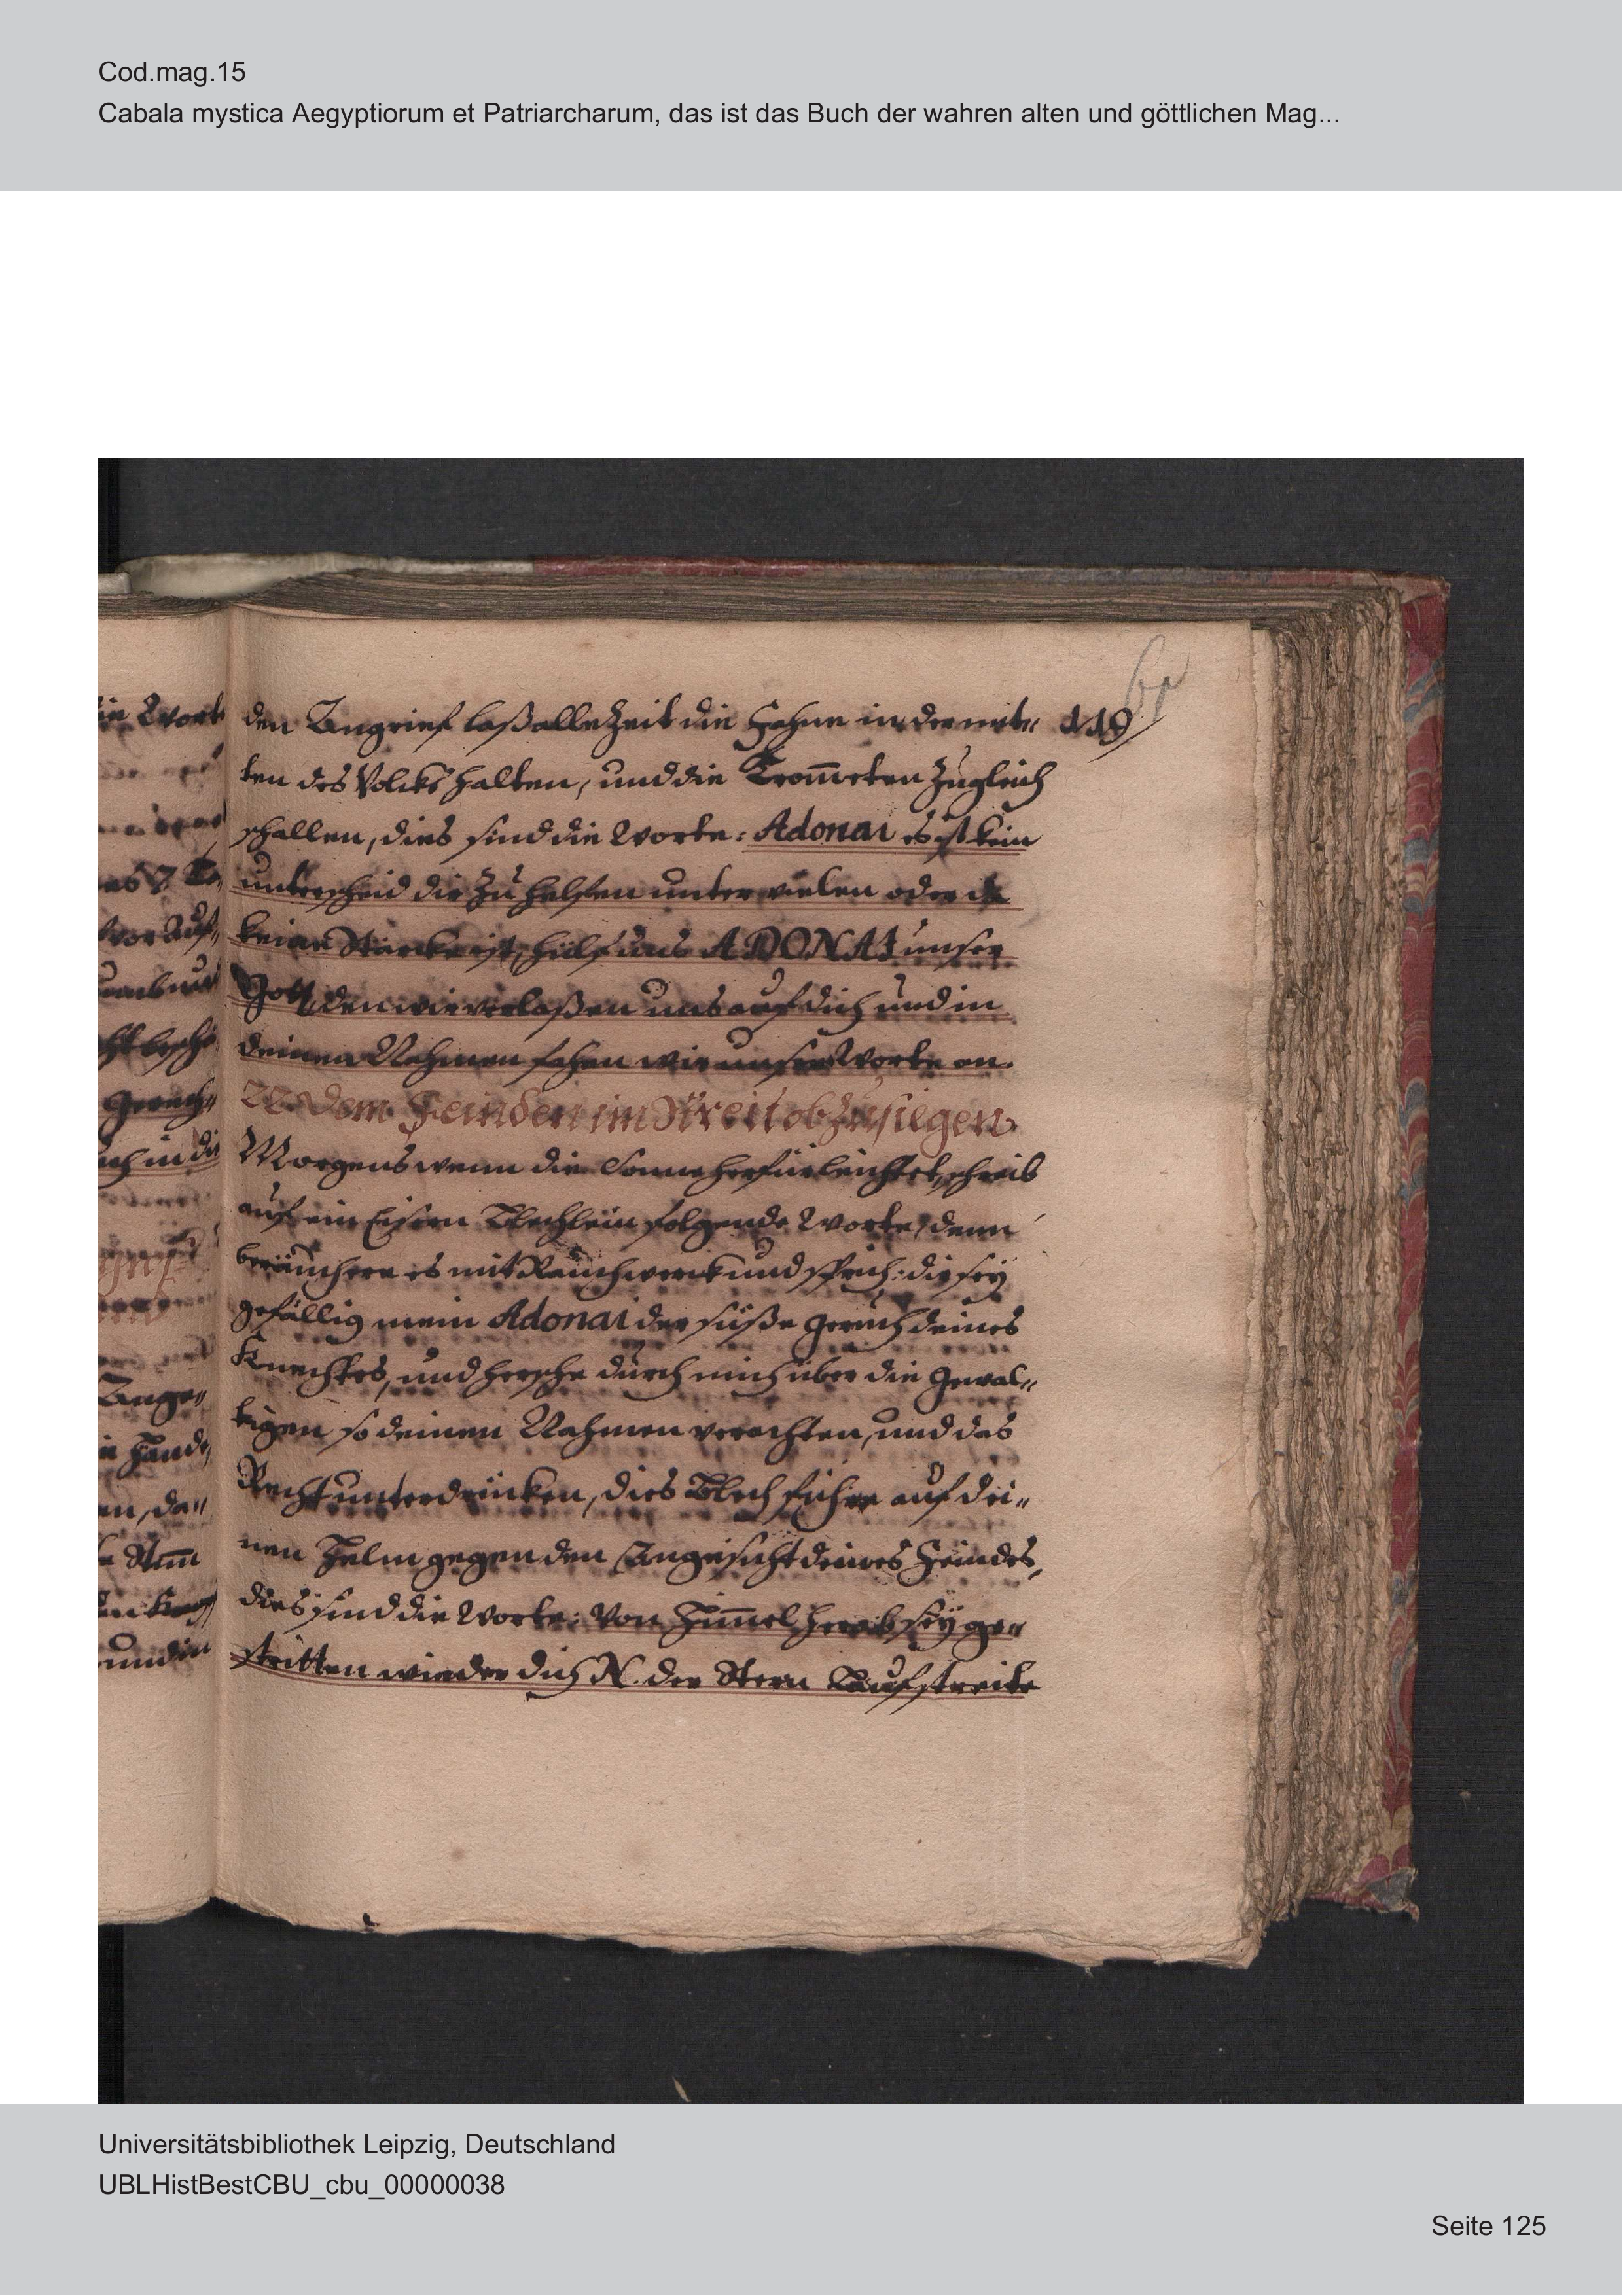 Cod.mag.15
Cabala mystica Aegyptiorum et Patriarcharum, das ist das Buch der wahren alten und göttlichen Mag...
den Angrief laß alle Zeit die Fahne in der mit„ 119
ten des Volcks halten, und die Trom̅eten zugleich
schallen, dies sind die Worte: Adonai es ist kein
unterscheid dir zu helfen unter vielen oder da
keine Stärcke ist, hülf uns ADONAI unser
Gott, den wir verlaßen uns auf dich und in
deinen Nahmen sehen wir unser Worte an.
dem Feinden im Streit obzusiegen.
Morgens wenn die Sonne herfür leuchtet, schreib
auf ein Eisern Blechlein folgende Worte, denn
beräuchere es mit Räuchwerck und sprich: dir seÿ
gefällig mein Adonai der süße geruch deines
Knechtes, und hersche durch mich über die Gewal„
tigen so deinen Nahmen verachten, und das
Recht unterdrücken, dies Blech führe auf dei„
nen Helm gegen den Angesicht deines Feindes,
dies sind die Worte: Von Him̅el herab seÿ ge„
stritten wieder dich N. der Stern Lauf streite
in Worte
Gerüch„
uch in di
Ange„
Händ„
en, da„
und in
Universitätsbibliothek Leipzig, Deutschland
UBLHistBestCBU_cbu_00000038
Seite 125